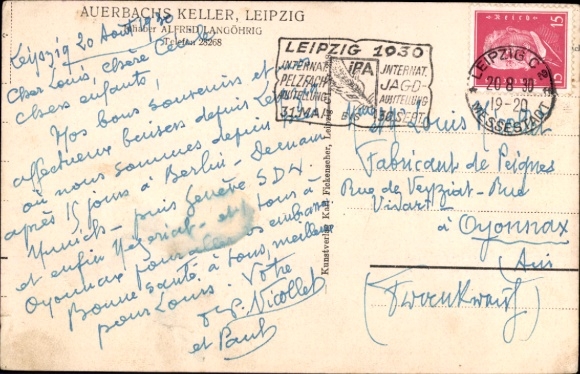 AUERBACHS KELLER, LEIPZIG
Inhaber ALFRED LANGÖHRIG
Telefon 28268
Leipzig 20 Août 1930
Cher Louis, chère
chers enfants!
Nos bons souvenirs et
affectueux baisers depuis Leipzig
où nous sommes depuis
après 15 jours à Berlin - Demain
Munich - puis Genève SDN
et enfin - et à
Oyonnax pour embrasser
Bonne santé à tous, meilleure
pour Louis. Votre
Nicollet
et Paul
Kunstverlag Karl Fickenscher, Leipzig
LEIPZIG 1930
INTERNAT.
PELZFACH
AUSTELLUNG
31. MAI
IPA
INTERNAT.
JAGD-
AUSTELLUNG
30. SEPT.
LEIPZIG C 2
20 8 30
19-20
MESSESTADT
15
15
Louis
Fabricant de Peignes
Rue de Veyziat - Rue
à Oyonnax
(Ain
(Frankreich)